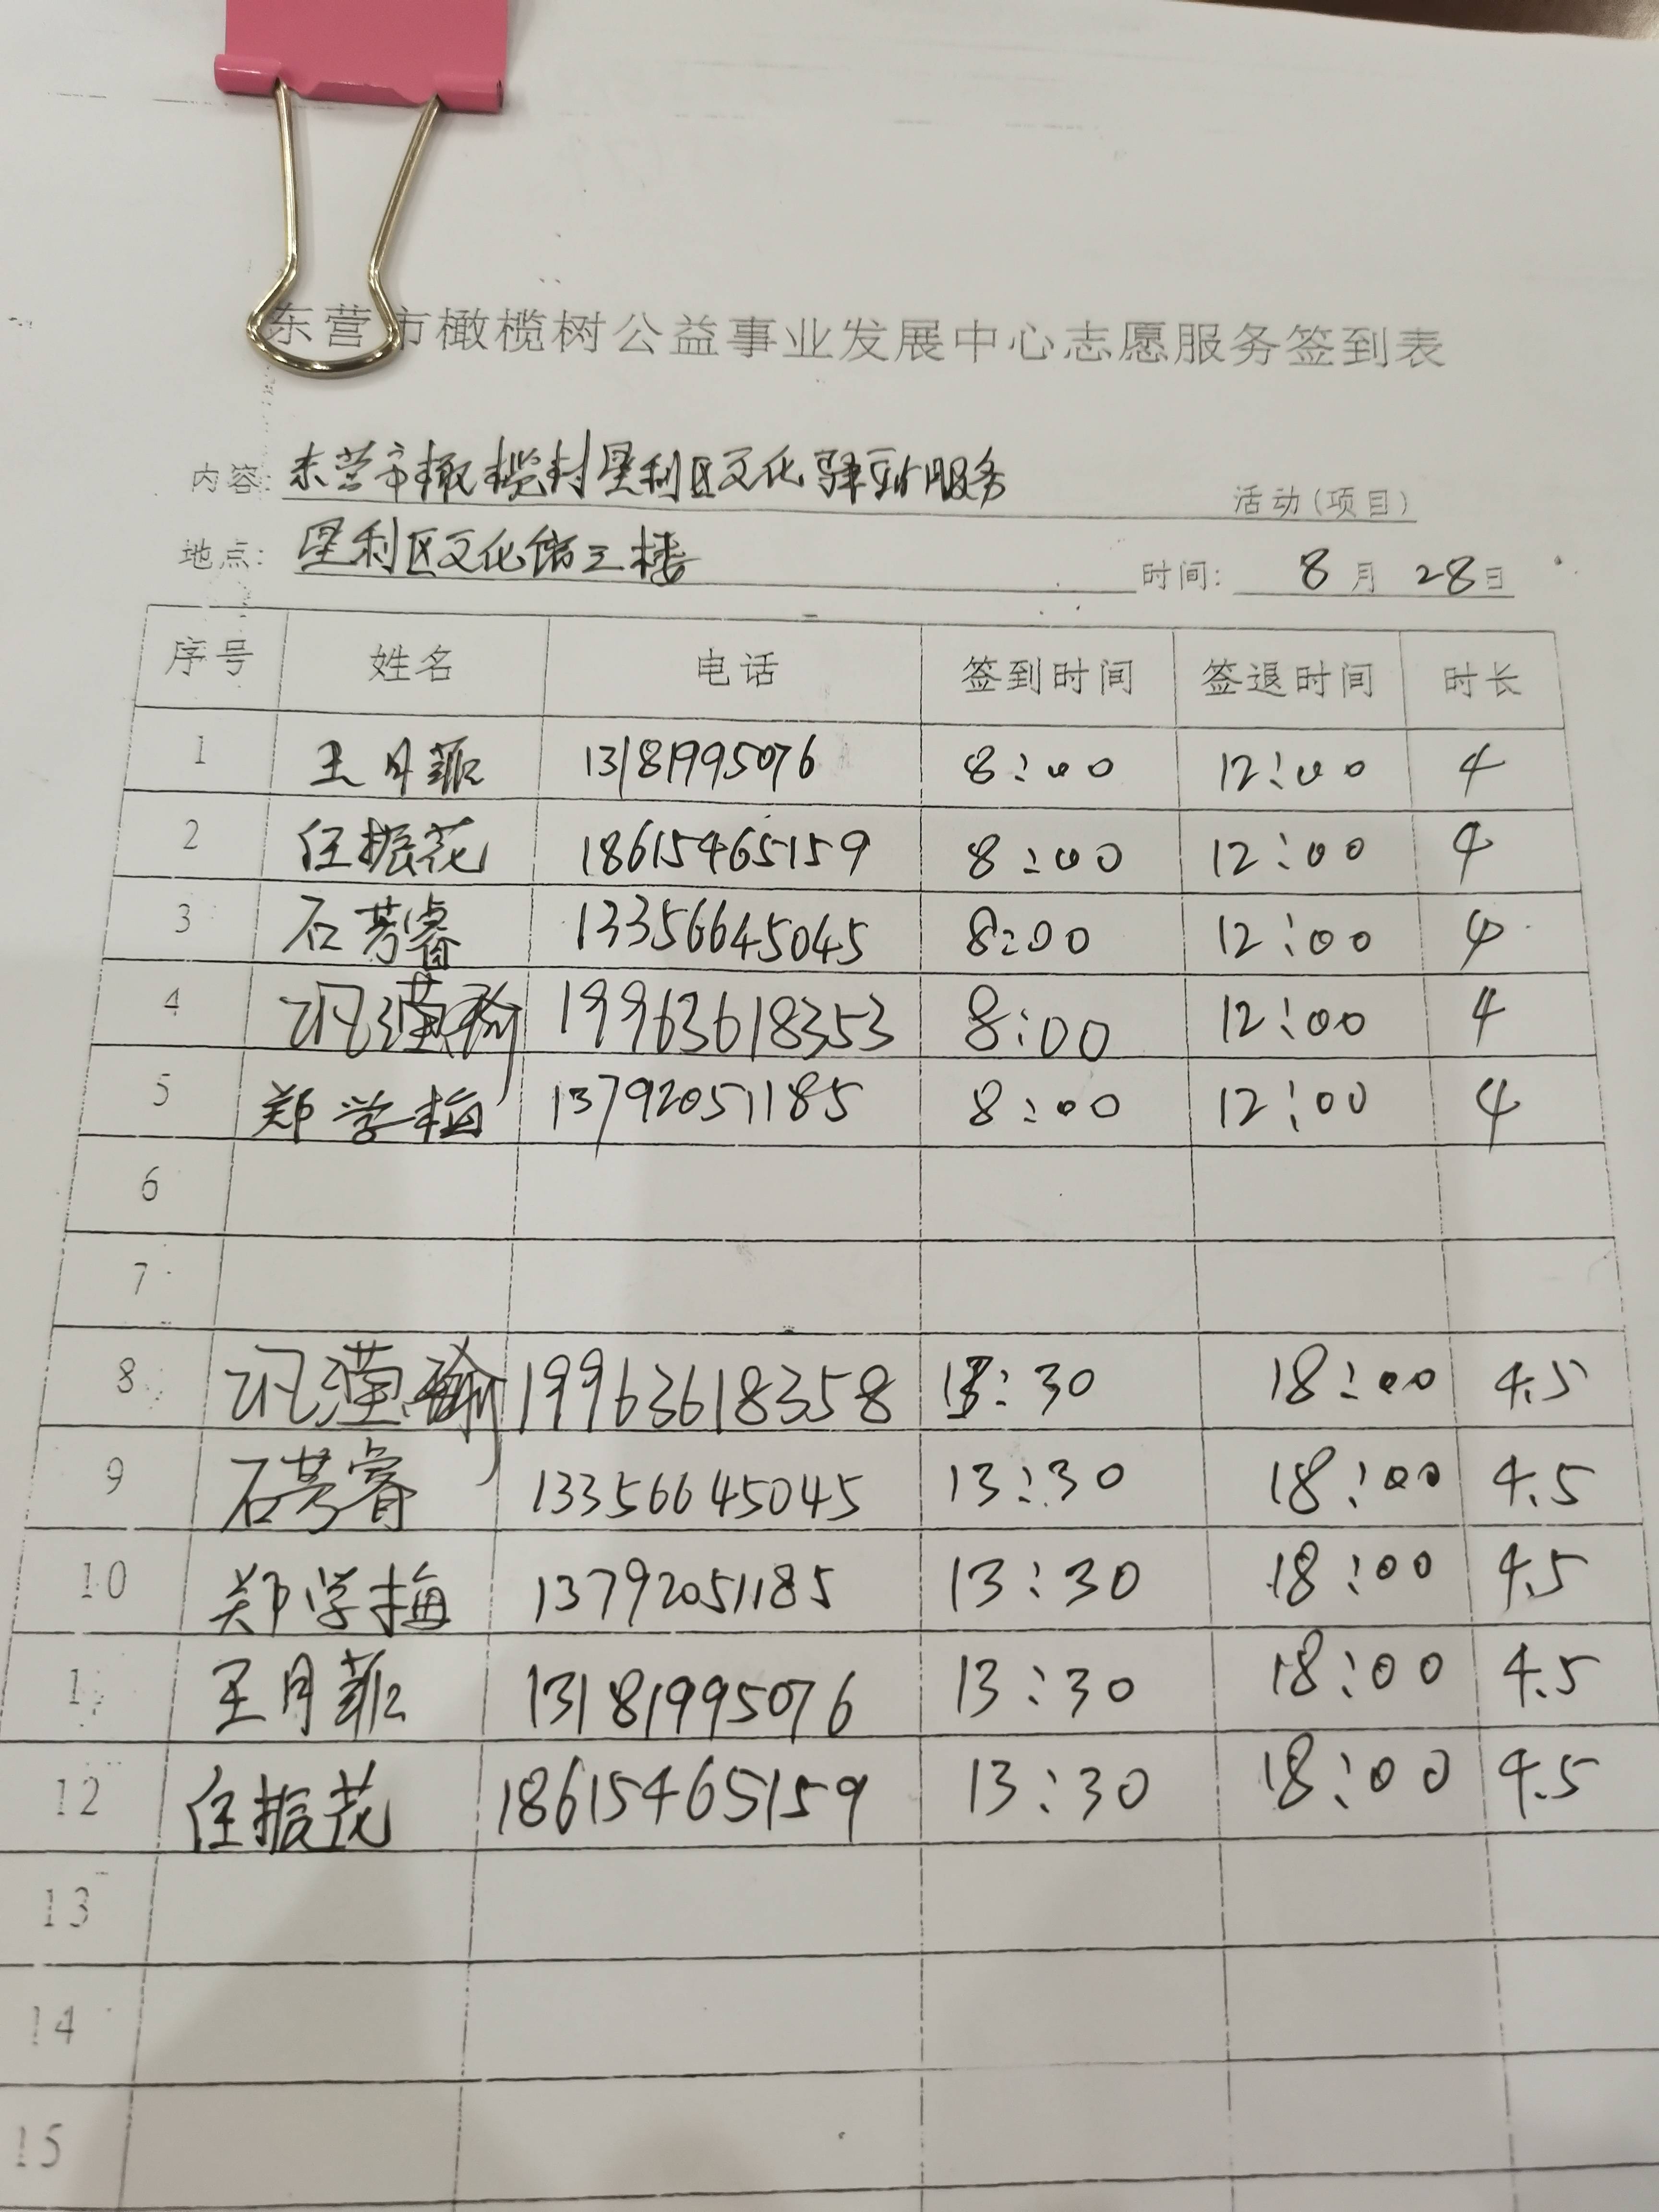 东营市橄榄树公益事业发展中心志愿服务签到表
内容: 东营市橄榄树垦利区文化驿站服务 活动(项目)
地点: 垦利区文化馆三楼 时间: 8月28日
序号 姓名 电话 签到时间 签退时间 时长
1 王月菲 13181995076 8:00 12:00 4
2 任振花 18615465159 8:00 12:00 4
3 石芳睿 13356645045 8:00 12:00 4
4 瑾瑜 19963618353 8:00 12:00 4
5 郑学梅 13792051185 8:00 12:00 4
6
7
8 瑾瑜 19963618358 13:30 18:00 4.5
9 石芳睿 13356645045 13:30 18:00 4.5
10 郑学梅 13792051185 13:30 18:00 4.5
1 王月菲 13181995076 13:30 18:00 4.5
12 任振花 18615465159 13:30 18:00 4.5
13
14
15